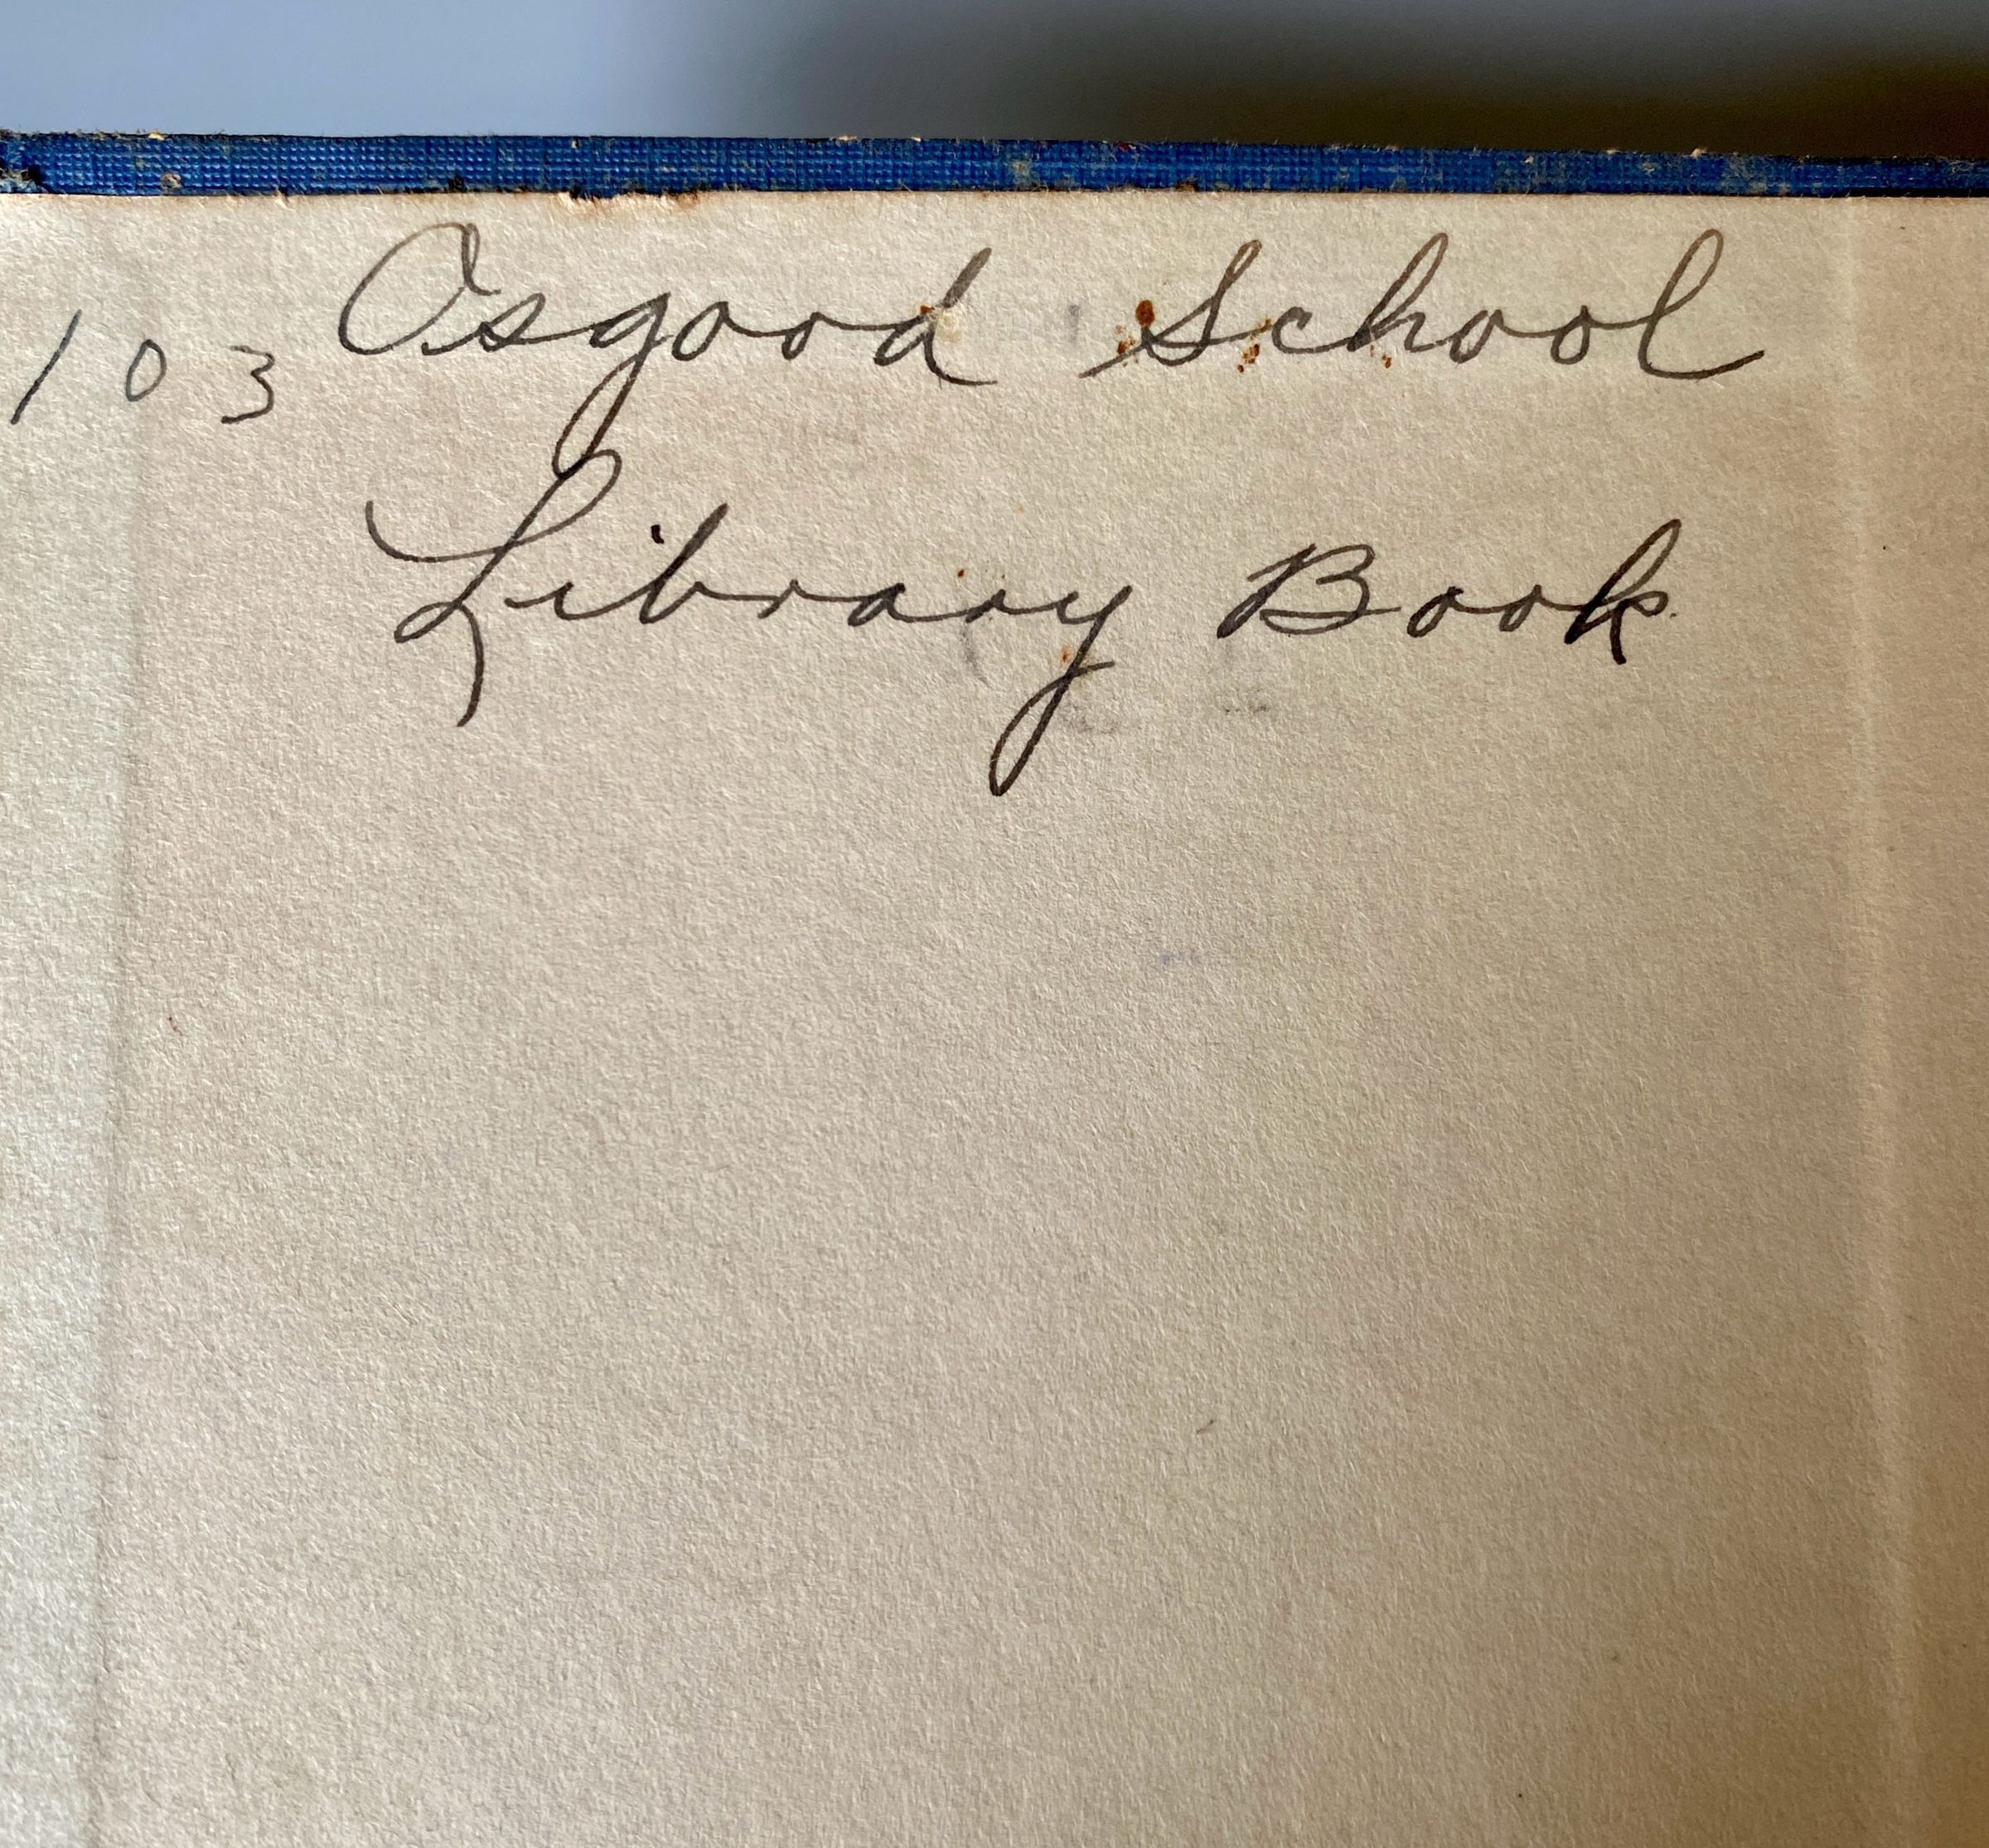 103 Osgood School
Library Book